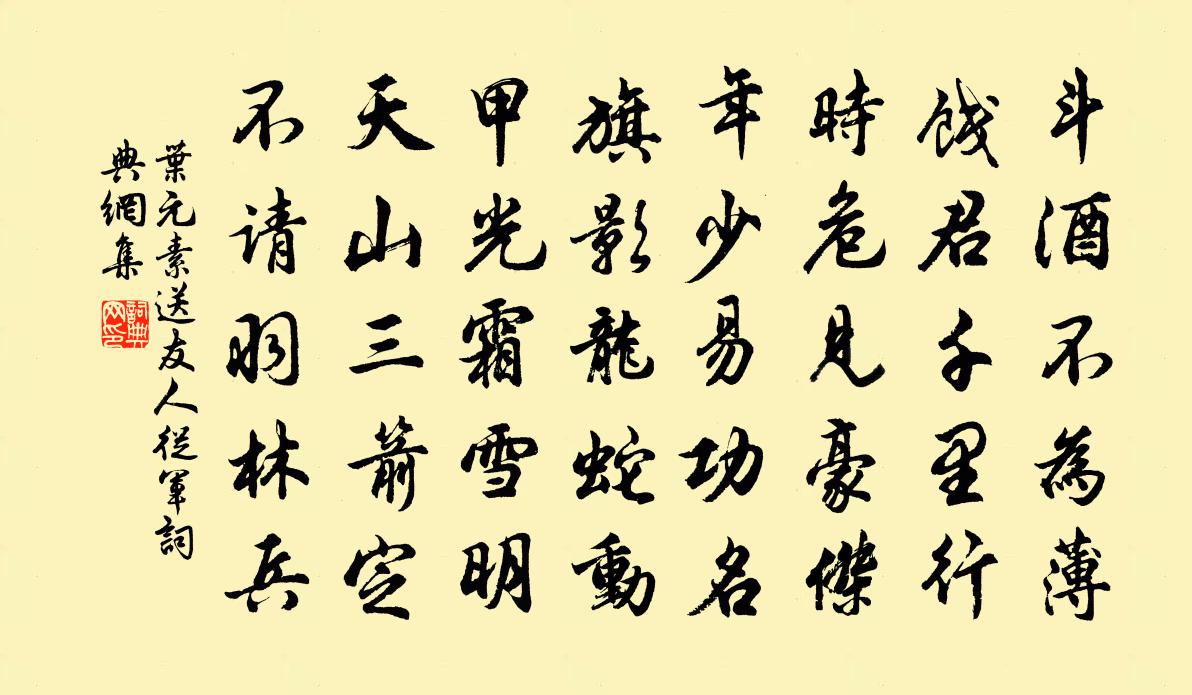 斗酒不為薄
餞君千里行
時危見豪傑
年少易功名
旗影龍蛇動
甲光霜雪明
天山三箭定
不请羽林兵
葉元素送友人從軍詞
典網集
詞典
网印